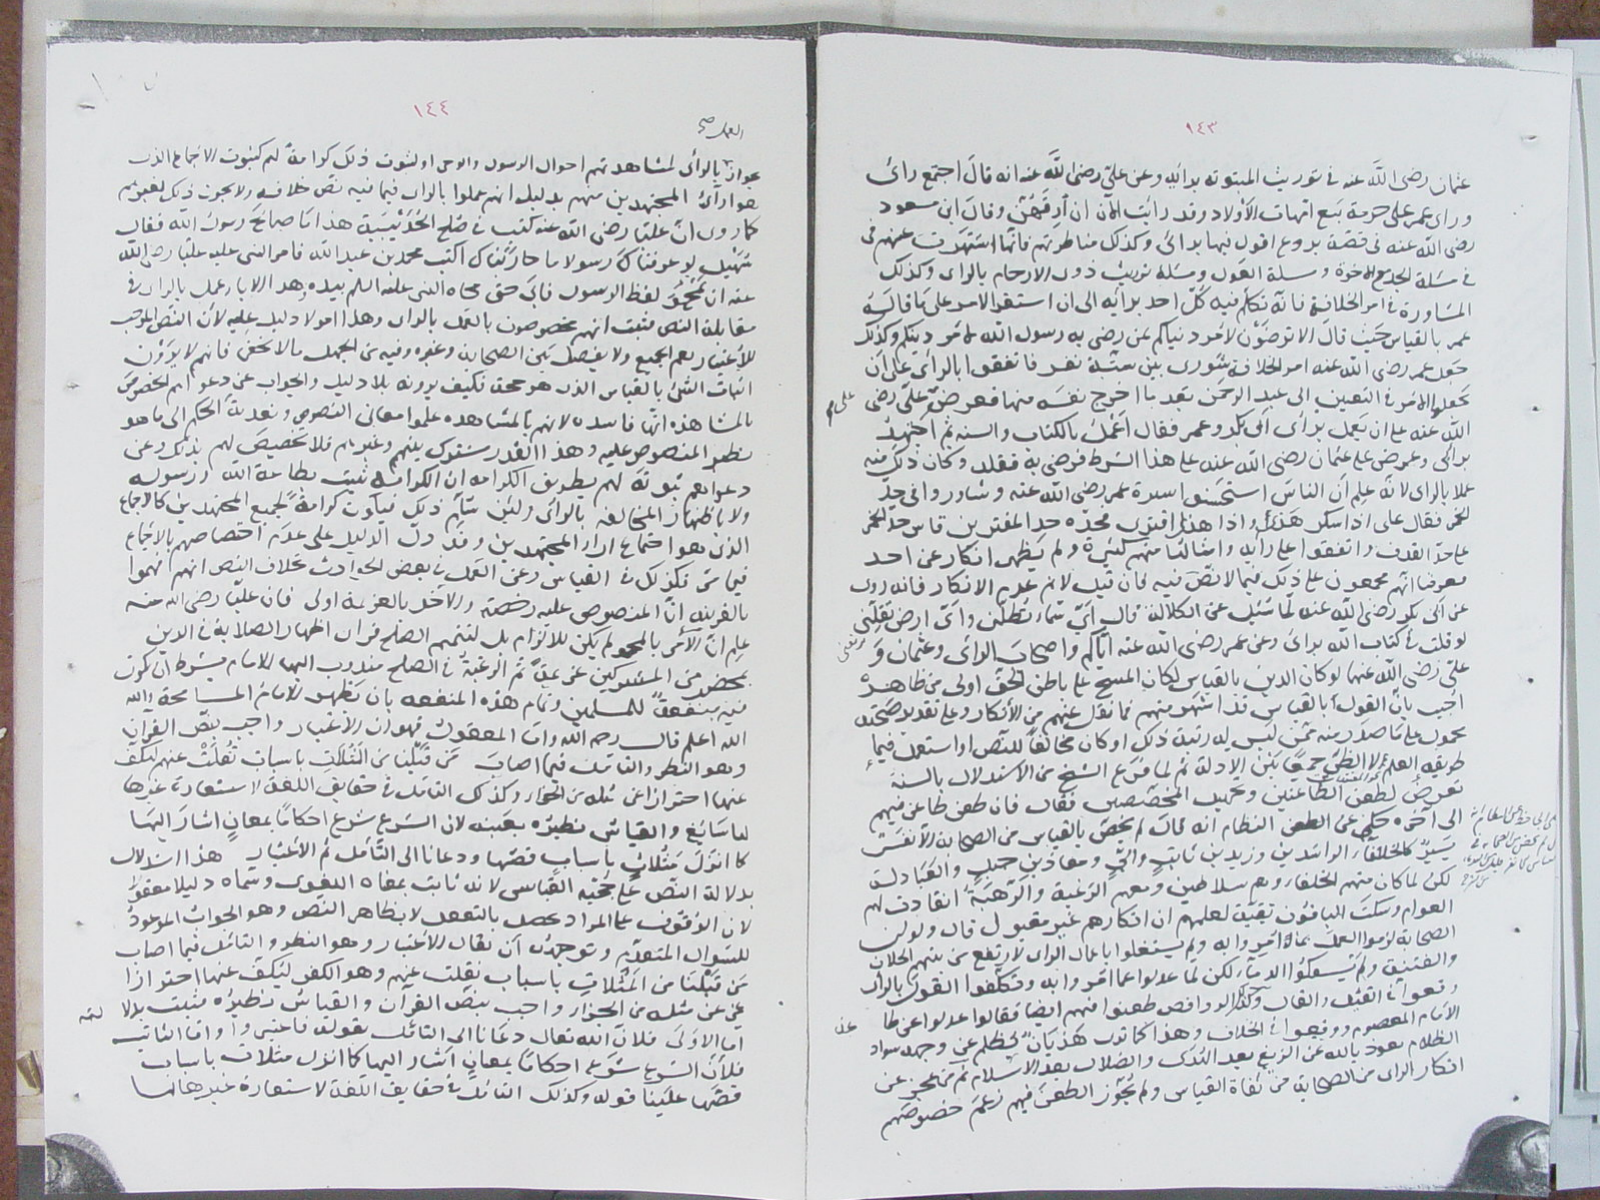 ١٤٣
عثمان رضى الله عنه فى توريث المبتوتة برأيه وعن على رضى الله عنه انه قال اجتمع رائى
وراى عمر على حرمة بيع امهات الأولاد وقد رايت الآن ان أرقهن وقال ابن مسعود
رضى الله عنه فى قصة بروع اقول فيها برائى وكذلك مناظرتهم فانها اشتهرت عنهم فى
فى مسئلة الجد مع الاخوة ومسئلة العول ومسئلة توريث ذوى الارحام بالراى وكذلك
المشاورة فى امر الخلافة فانه تكلم فيه كل احد برأيه الى ان استقر الامر على ما قاله
عمر بالقياس حيث قال الا ترضون لامر دنياكم من رضى به رسول الله لامر دينكم وكذلك
جعل عمر رضى الله عنه امر الخلافة شورى بين ستة نفر فاتفقوا بالرأى على ان
يجعلوا الامر فى التعيين الى عبد الرحمن بعد ما اخرج نفسه منها فعرض على على رضى
الله عنه على ان يعمل برأى ابى بكر وعمر فقال اعمل بالكتاب والسنة ثم اجتهد
برائى وعرض على عثمان رضى الله عنه على هذا الشرط فرضى به فقلد وكان ذلك منه
عملا بالراى لانه علم ان الناس استحسنوا سيرة عمر رضى الله عنه وشاوروا فى حد
الخمر فقال على اذا سكر هذى واذا هذى افترى فحده حد المفترين قاس حد الخمر
على حد القذف واتفقوا على رأيه وامثالنا منهم كثيرة ولم يظهر انكار عن احد
فعرفنا انهم مجمعون على ذلك فيما لا نص فيه فان قيل لا نم عدم الانكار فانه روى
عن ابى بكر رضى الله عنه لما سئل عن الكلالة قال اى سماء تظلنى واى ارض تقلنى
لو قلت فى كتاب الله برائى وعن عمر رضى الله عنه اياكم واصحاب الرائى وعثمان و
على رضى الله عنهما لو كان الدين بالقياس لكان المسح على باطن الخف اولى من ظاهره
اجيب بان القول بالقياس قد اشتهر منهم فما نقل عنهم من الانكار وعلى تقدير صحته
محمول على ما صدر منه ممن ليس له رتبة ذلك او كان مخالفا للنص او استعمل فيما
طريقه العلم لا الظن جمعا بين الادلة ثم لما فرغ الشيخ من الاستدلال بالسنة
تعرض لطعن الطاعنين وتجهيل المخصصين فقال فان طعن طاعن فيهم
الى آخره حكى عن الطعن النظام انه قال لم يخص بالقياس من الصحابة الا نفر
يسير كالخلفاء الراشدين وزيد بن ثابت وابى ومعاذ بن جبل والعبادلة
لكن لما كان منهم الخلفاء وهم سلاطين ومعهم الرغبة والرهبة انقادت لهم
العوام وسكت الباقون تقية لعلمهم ان انكارهم غير مقبول قال ولو ان
الصحابة لزموا العمل بما امروا به ولم يستعملوا باعمال الراى لارتفع من بينهم الخلاف
والفتنة ولم يسفكوا الدماء لكن لما عدلوا عما امروا به وتكلفوا القول بالراى
وقعوا فى القتل والقال وكذا الروافض طعنوا فيهم ايضا فقالوا عدلوا عن طاعة
الامام المعصوم ووقعوا فى الخلاف وهذا كما ترى هذيان
الظلام نعوذ بالله عن الزيغ بعد الهدى والضلال بعد الاسلام ثم من عجز عن
انكار الراى من الصحابة من نفاة القياس ولم يجوز الطعن فيهم زعم خصوصهم
١٤٤
العمل صح
بجواز بالرأى لمشاهدتهم احوال الرسول والوحى او لثبوت ذلك كرامة لهم كثبوت الاجماع الذى
هو آراء المجتهدين منهم بدليل انهم عملوا بالراى فيما فيه نص خلافه ولا يجوز ذلك لغيرهم
كما روى ان عليا رضى الله عنه كتب فى صلح الحديبية هذا ما صالح رسول الله فقال
سهيل لو عرفناك رسولا ما حاربناك اكتب محمد بن عبد الله فامر النبى عليه عليا رضى الله
عنه ان يمحو لفظ الرسول فابى حتى محاه النبى عليه السلم بيده هذا الاباء عمل بالراى فى
مقابلة النص فثبت انهم مخصوصون بالعمل بالراى وهذا امر لا دليل عليه لأن النص الموجب
للاعتبار يعم الجميع ولا يفصل بين الصحابة وغيره وفيه من الجهل ما لا يخفى فانهم لا يرون
اثبات الشئ بالقياس الذى هو حجة فكيف يرونه بلا دليل والجواب عن دعواهم الخصوص
بالمشاهدة انها فاسدة لانهم بالمشاهدة علموا معانى النصوص وتعدية الحكم الى ما هو
نظير المنصوص عليه وهذا القدر مشترك بينهم وغيرهم فلا تخصيص لهم بذلك وعن
دعواهم ثبوته لهم بطريق الكرامة ان الكرامة تثبت بطاعة الله ورسوله
ولا باظهار المخالفة بالرأى ولئن سلم ذلك فيكون كرامة لجميع المجتهدين كالاجماع
الذى هو اجتماع اراء المجتهدين وقد دل الدليل على عدم اختصاصهم بالاجماع
فيما مر فكذلك فى القياس وعن العمل فى بعض الحوادث بخلاف النص انهم فهموا
بالقرينة ان المنصوص عليه رخصة والاخذ بالعزيمة اولى فان عليا رضى الله عنه
علم ان الأمر بالمحو لم يكن للالزام بل لتتميم الصلح فراى اظهار الصلابة فى الدين
بمحضر من المشركين عزيمة ثم الرغبة فى الصلح مندوب اليها للامام بشرط ان يكون
فيه منفعة للمسلمين وتمام هذه المنفعة بان يظهر الامام المسامحة والله
الله اعلم قال رحمه الله واما المعقول فهو ان الاعتبار واجب بنص القرآن
وهو النظر والتامل فيما اصاب من قبلنا من المثلات باسباب نقلت عنهم لنكف
عنها احترازا عن مثله من الجزاء وكذلك التامل فى حقايق اللغة لاستعارة غيرها
لها سائغ والقياس نظيره بعينه لان الشرع شرع احكاما بمعان اشار اليها
كما انزل مثلات باسباب قصها ودعانا الى التأمل ثم الاعتبار هذا استدلال
بدلالة النص على حجية القياس لانه ثابت بمعناه اللغوى وسماه دليلا معقولا
لان الوقوف على المراد يحصل بالتعقل لا بظاهر النص وهو الجواب الموعود
للسؤال المتقدم وتوجيهه ان يقال الاعتبار وهو النظر والتامل فيما اصاب
من قبلنا من المثلات باسباب نقلت عنهم وهو الكفر لنكف عنها احترازا
عن مثله من الجزاء واجب بنص القرآن والقياس نظيره
اما الاولى فلان الله تعالى دعانا الى التامل بقوله فاعتبروا واما الثانية
فلأن الشرع شرع احكاما بمعان اشار اليها كما انزل مثلات باسباب
قصها علينا قوله وكذلك التامل فى حقايق اللغة لاستعارة غيرها لها